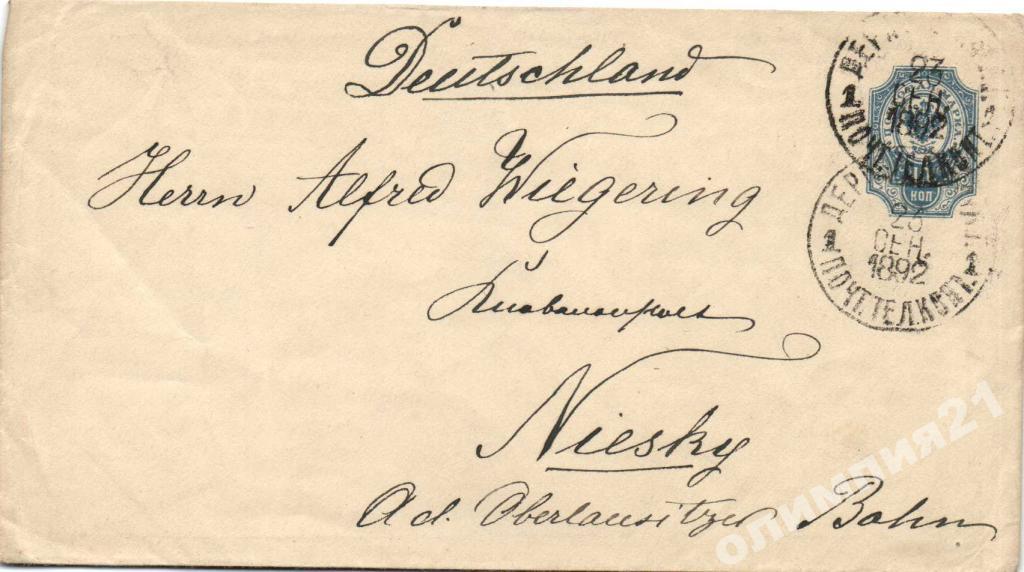 Deutschland
Herrn Alfred Wiegering
Niesky
a.d. Oberlausitzer Bahn
23 СЕН. 1892
ПОЧ.ТЕЛ.КОНТ.
1 1
КОП
23 СЕН. 1892
ПОЧ.ТЕЛ.КОНТ.
1 1
олимпия21